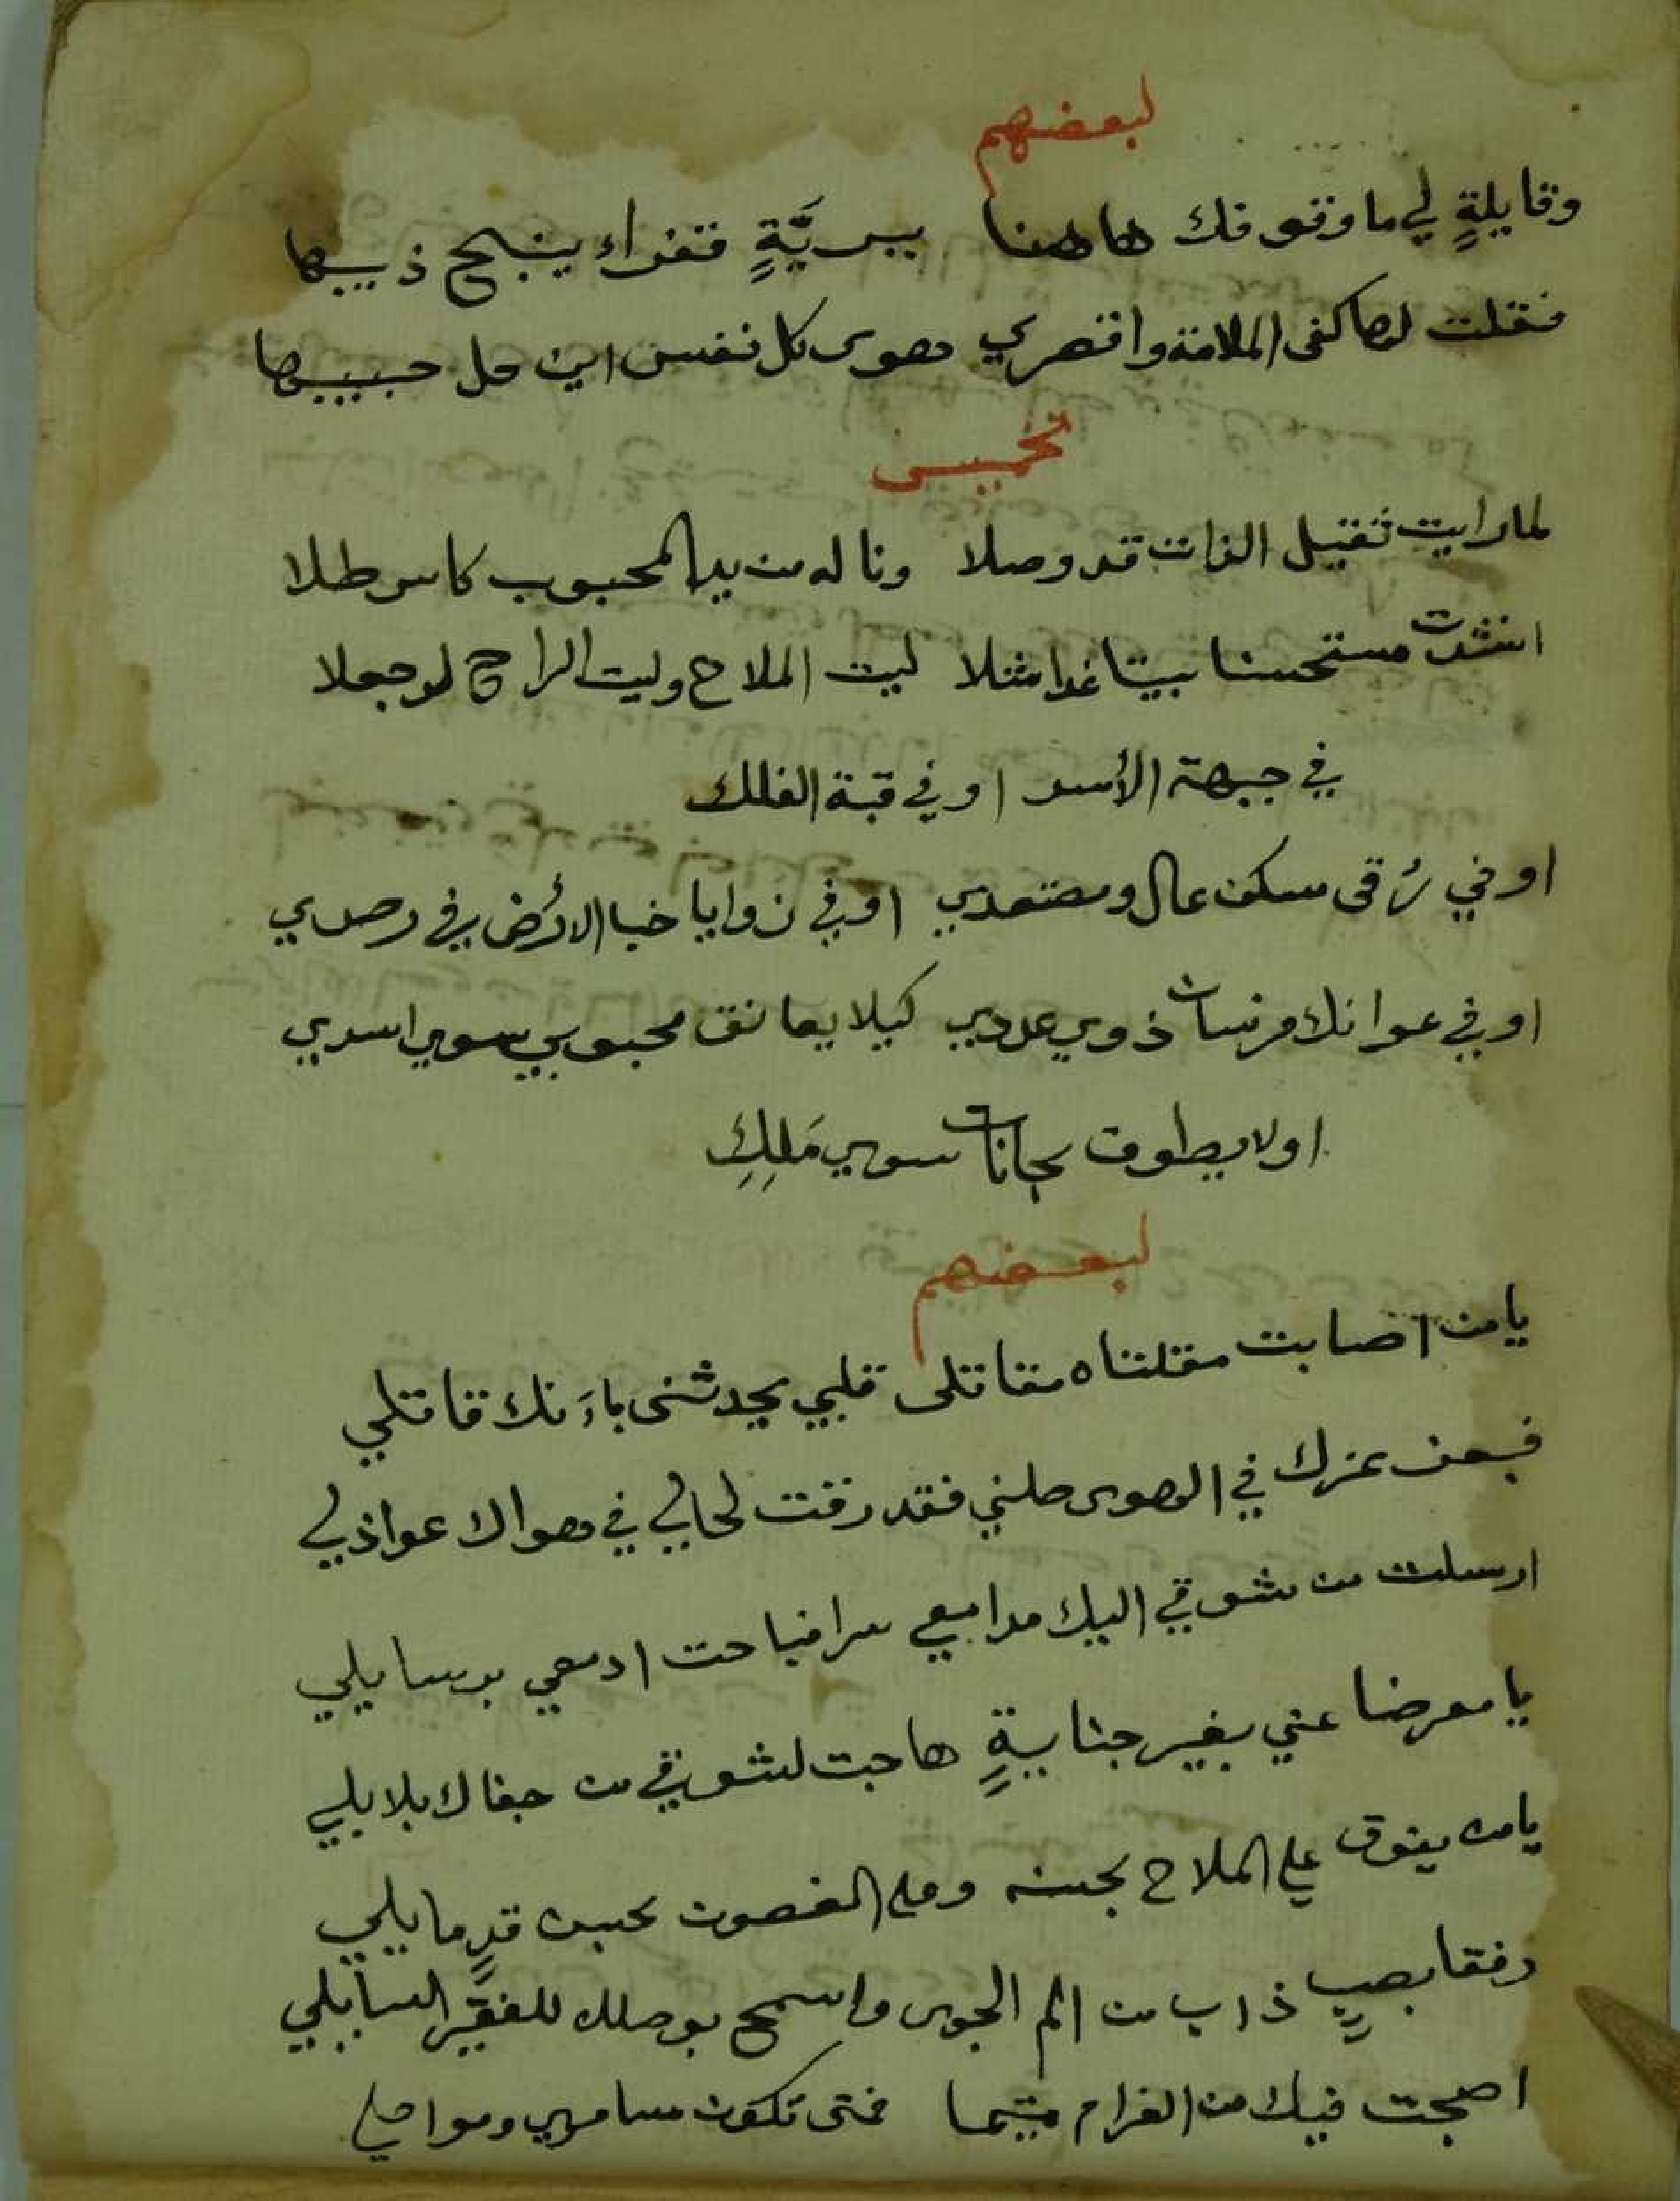 لبعضهم
وقايلةٍ لي ما وقوفك هاهنا ببريَّةٍ قفراء ينبح ذيبها
فقلت لها كفى الملامة واقصري هوى كل نفس اين حل حبيبها
تخميس
لما رايت ثقيل الذات قد وصلا وناله من يد المحبوب كاس طلا
انشدت مستحسنا بيتا غدا مثلا ليت الملاح وليت الراح لو جعلا
في جبهة الأسد او في قبة الفلك
او في رقى مسكن عال ومصتعدي او في زوايا خبا الارض في رصدي
او في عوانك فرسان ذوي عددي كيلا يعانق محبوبي سوى اسدي
او لا يطوف بحانات سوى مَلِكِ
لبعضهم
يا من اصابت مقلتاه مقاتلى قلبي يحدثنى بأنك قاتلي
فبعز عزك في الهوى صلني فقد رقت لحالي في هواك عواذلي
ارسلت من شوقي اليك مدامعي سرا فباحت ادمعي برسايلي
يا معرضا عني بغير جنايةٍ هاجت لشوقي من جفاك بلابلي
يا من يفوق على الملاح بحسنه وعلى الغصون بحسن قدٍ مايلي
رفقا بصبٍ ذاب من الم الجوى واسمح بوصلك للفقير السايلي
اصبحت فيك من الغرام متيما فمتى تكون مسامري ومواصلي